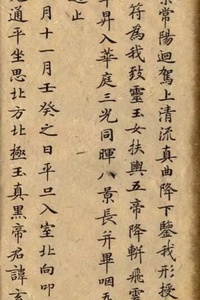 常陽迴駕上清流真曲降下鑒我形授
符為我致靈玉女扶輿五帝降軿飛雲
昇入華庭三光同暉八景長并畢咽五
止
月十一月壬癸之日平旦入室北向叩
通平坐思北方北極玉真黑帝君諱玄